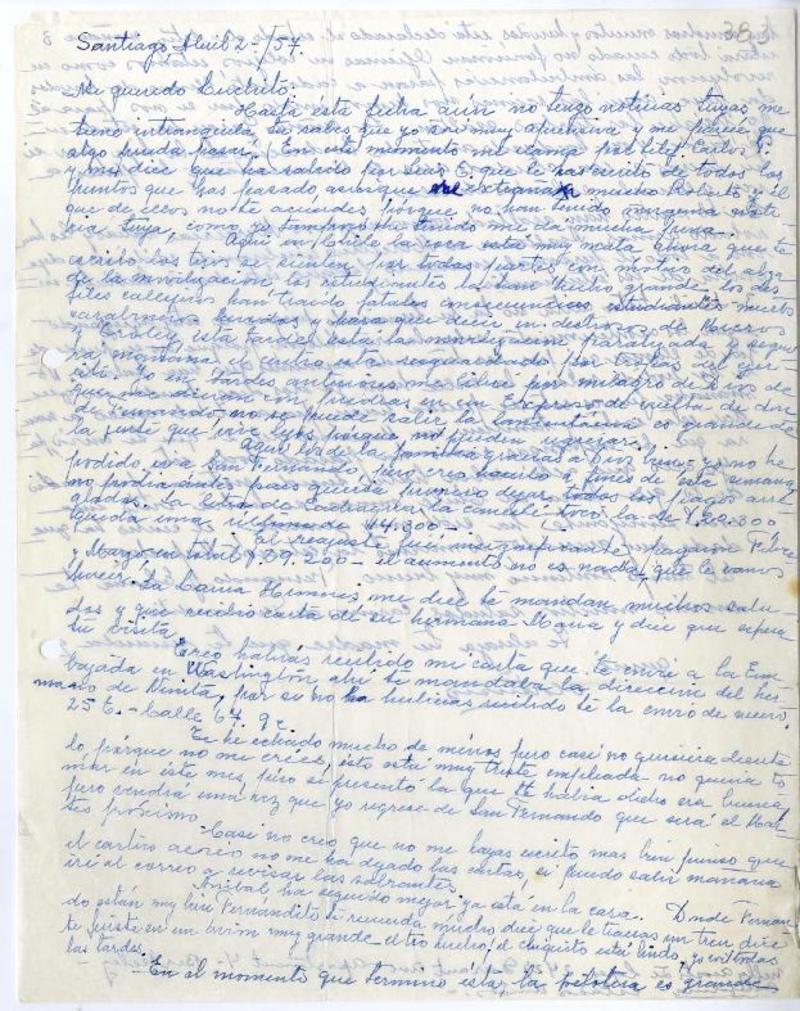 383
Santiago, Abril 2-/57.
Mi querido Luchito:
Hasta esta fecha aún no tengo noticias tuyas, me
tiene intranquila, tu sabes que yo soy muy aprensiva y me parece que
algo pueda pasar. (En este momento me llama por telef. Carlos V.
y me dice que ha sabido por Luis E. que le has escrito de todos los
puntos que has pasado, asi es que extraña mucho Roberto y él
que de ellos no te acuerdes porque no han tenido ninguna noti-
cia tuya, como yo tampoco he tenido me da mucha pena.
Aquí en Chile la cosa está muy mala ahora que te
escribo los tiros se sienten por todas partes con motivo del alza
de la movilización los estudiantes la han hecho grande, los des-
files callejeros han traido fatales consecuencias estudiantes muertos
carabineros heridos y para que decir en destrozos de Micros
y Troley, esta tarde está la movilización paralizada y segui-
rá mañana el centro esta resguardado por tropas del ejér-
cito. Yo en tardes anteriores me libré por milagro de Dios de
que me dieran con piedras en un Expreso de vuelta de don-
de Fernando, no se puede salir la es grande de
la gente que vive lejos porque no pueden regresar.
Aquí los de la familia gracias a Dios bien - yo no he
podido ir a San Fernando, pero creo hacerlo a fines de esta semana
no podía antes pues quería primero dejar todos los pagos arre-
glados. La letra de la cancelé toco la de $.20.300
queda una última de $4.300-
El reajuste fué insignificante pagaron Febre.
y Marzo, en total $.39.200- el aumento no es nada, que le vamos
hacer. La Laura me dice te mandan muchos salu-
dos y que recibió carta de su hermana Maria y dice que espera
tu visita.
Creo habrás recibido mi carta que te envié a la Em-
bajada en Washington ahi te mandaba la dirección del her-
mano de Ninita, por si no la hubieras recibido te la envio de nuevo.
25 E. - Calle 67. 9 c.
Te he echado mucho de menos pero casi no quisiera decirte
lo, porque no me crees, esto está muy triste, empleada no queria to
mar en éste mes, pero se presentó la que te habia dicho era buena
pero vendrá una vez que yo regrese de San Fernando que será el Mar-
tes próximo.
Casi no creo que no me hayas escrito mas bien pienso que
el cartero aereo no me ha dejado las cartas, si puedo salir mañana
iré al correo a revisar las sobrantes.
Anibal ha seguido mejor ya está en la casa. Donde Fernan
do están muy bien Fernandito te recuerda mucho dice que le traeras un tren, dice
te fuiste en un avion muy grande el tio Lucho, el chiquito está lindo, yo voi todas
las tardes.
- En el momento que termino ésta, la pelotera es grande